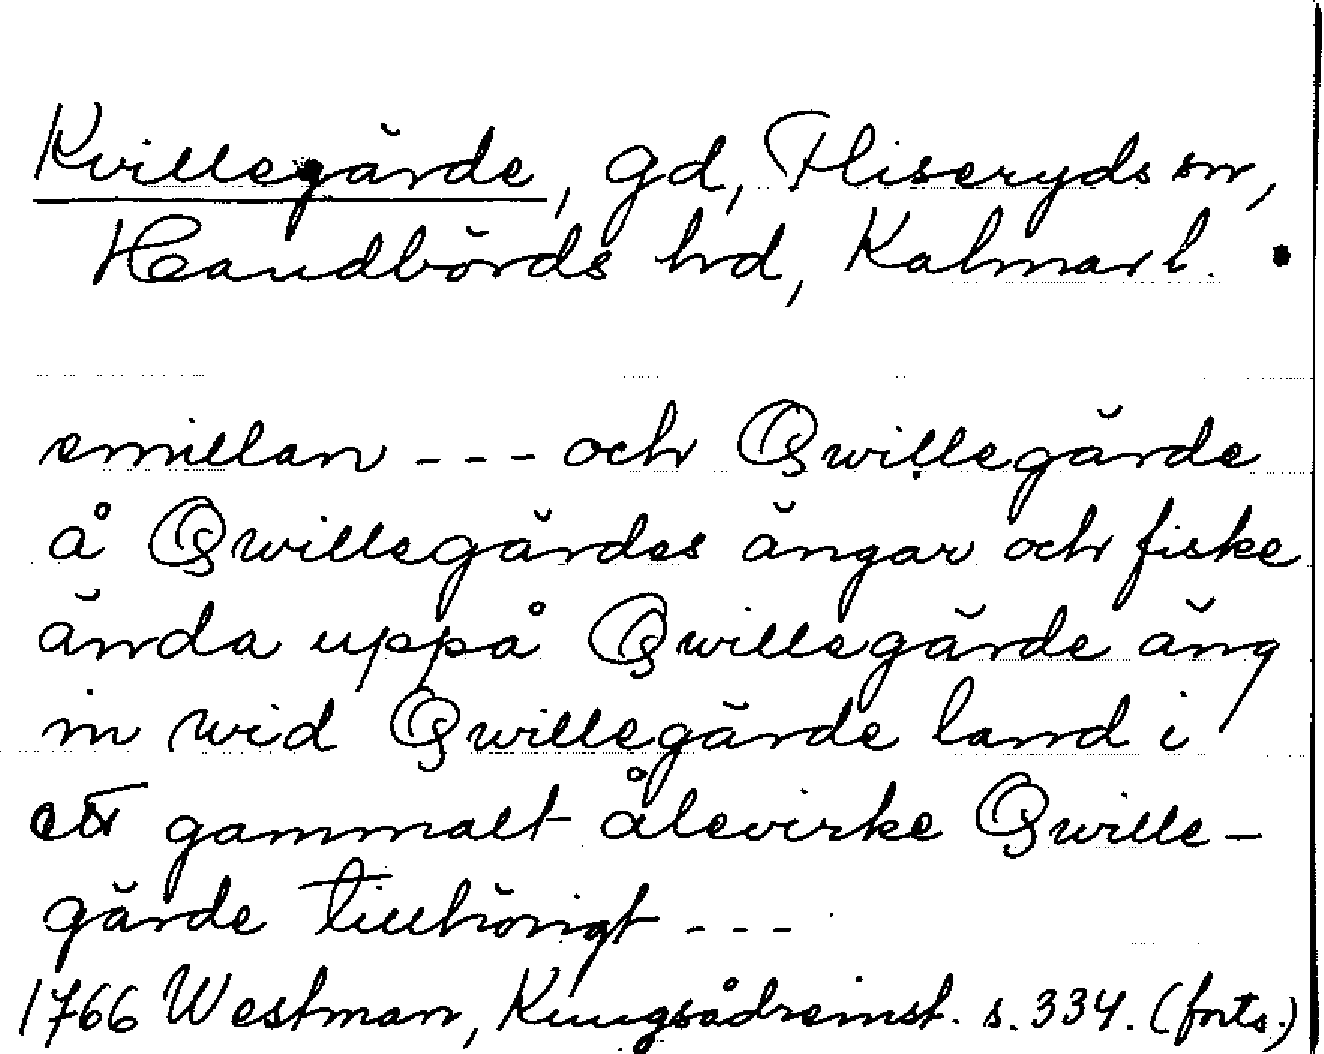 Kvillegärde, gd, Fliseryds sn,
Handbörds hd, Kalmar l.
emillan --- och Qwillegärde
å Qwillegärdes ängar och fiske
ända uppå Qwillegärde äng
in wid Qwillegärde land i
ett gammalt ålevirke Qwille-
gärde tillhörigt ---
1766 Westman, Kungsådreinst. s. 334. (forts.)